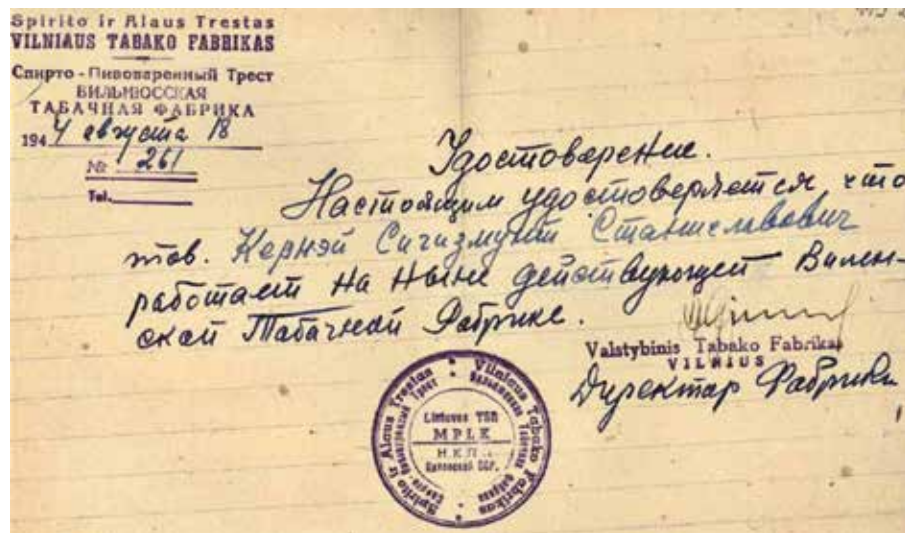 Spirito ir Alaus Trestas
VILNIAUS TABAKO FABRIKAS
Спирто-Пивоваренный Трест
ВИЛЬНЮССКАЯ
ТАБАЧНАЯ ФАБРИКА
1944 августа 18
№ 261
Tel.
Удостоверение.
Настоящим удостоверяется, что
тов. Кернэй Сигизмунт Станиславович
работает на ныне действующей Вилен-
ской Табачной Фабрике.
Valstybinis Tabako Fabrikas
VILNIUS
Директар Фабрики
Spirito ir Alaus Trestas • Vilniaus Tabako Fabrikas
Lietuvos TSR
MPLK
Н.К.П.